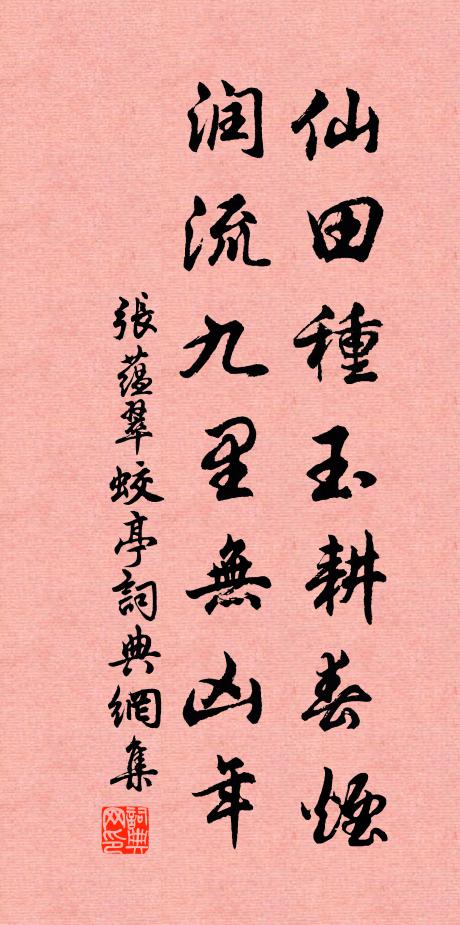 仙田種玉耕春煙
润流九里無凶年
張蕴翠蛟亭詞典網集
詞典网印